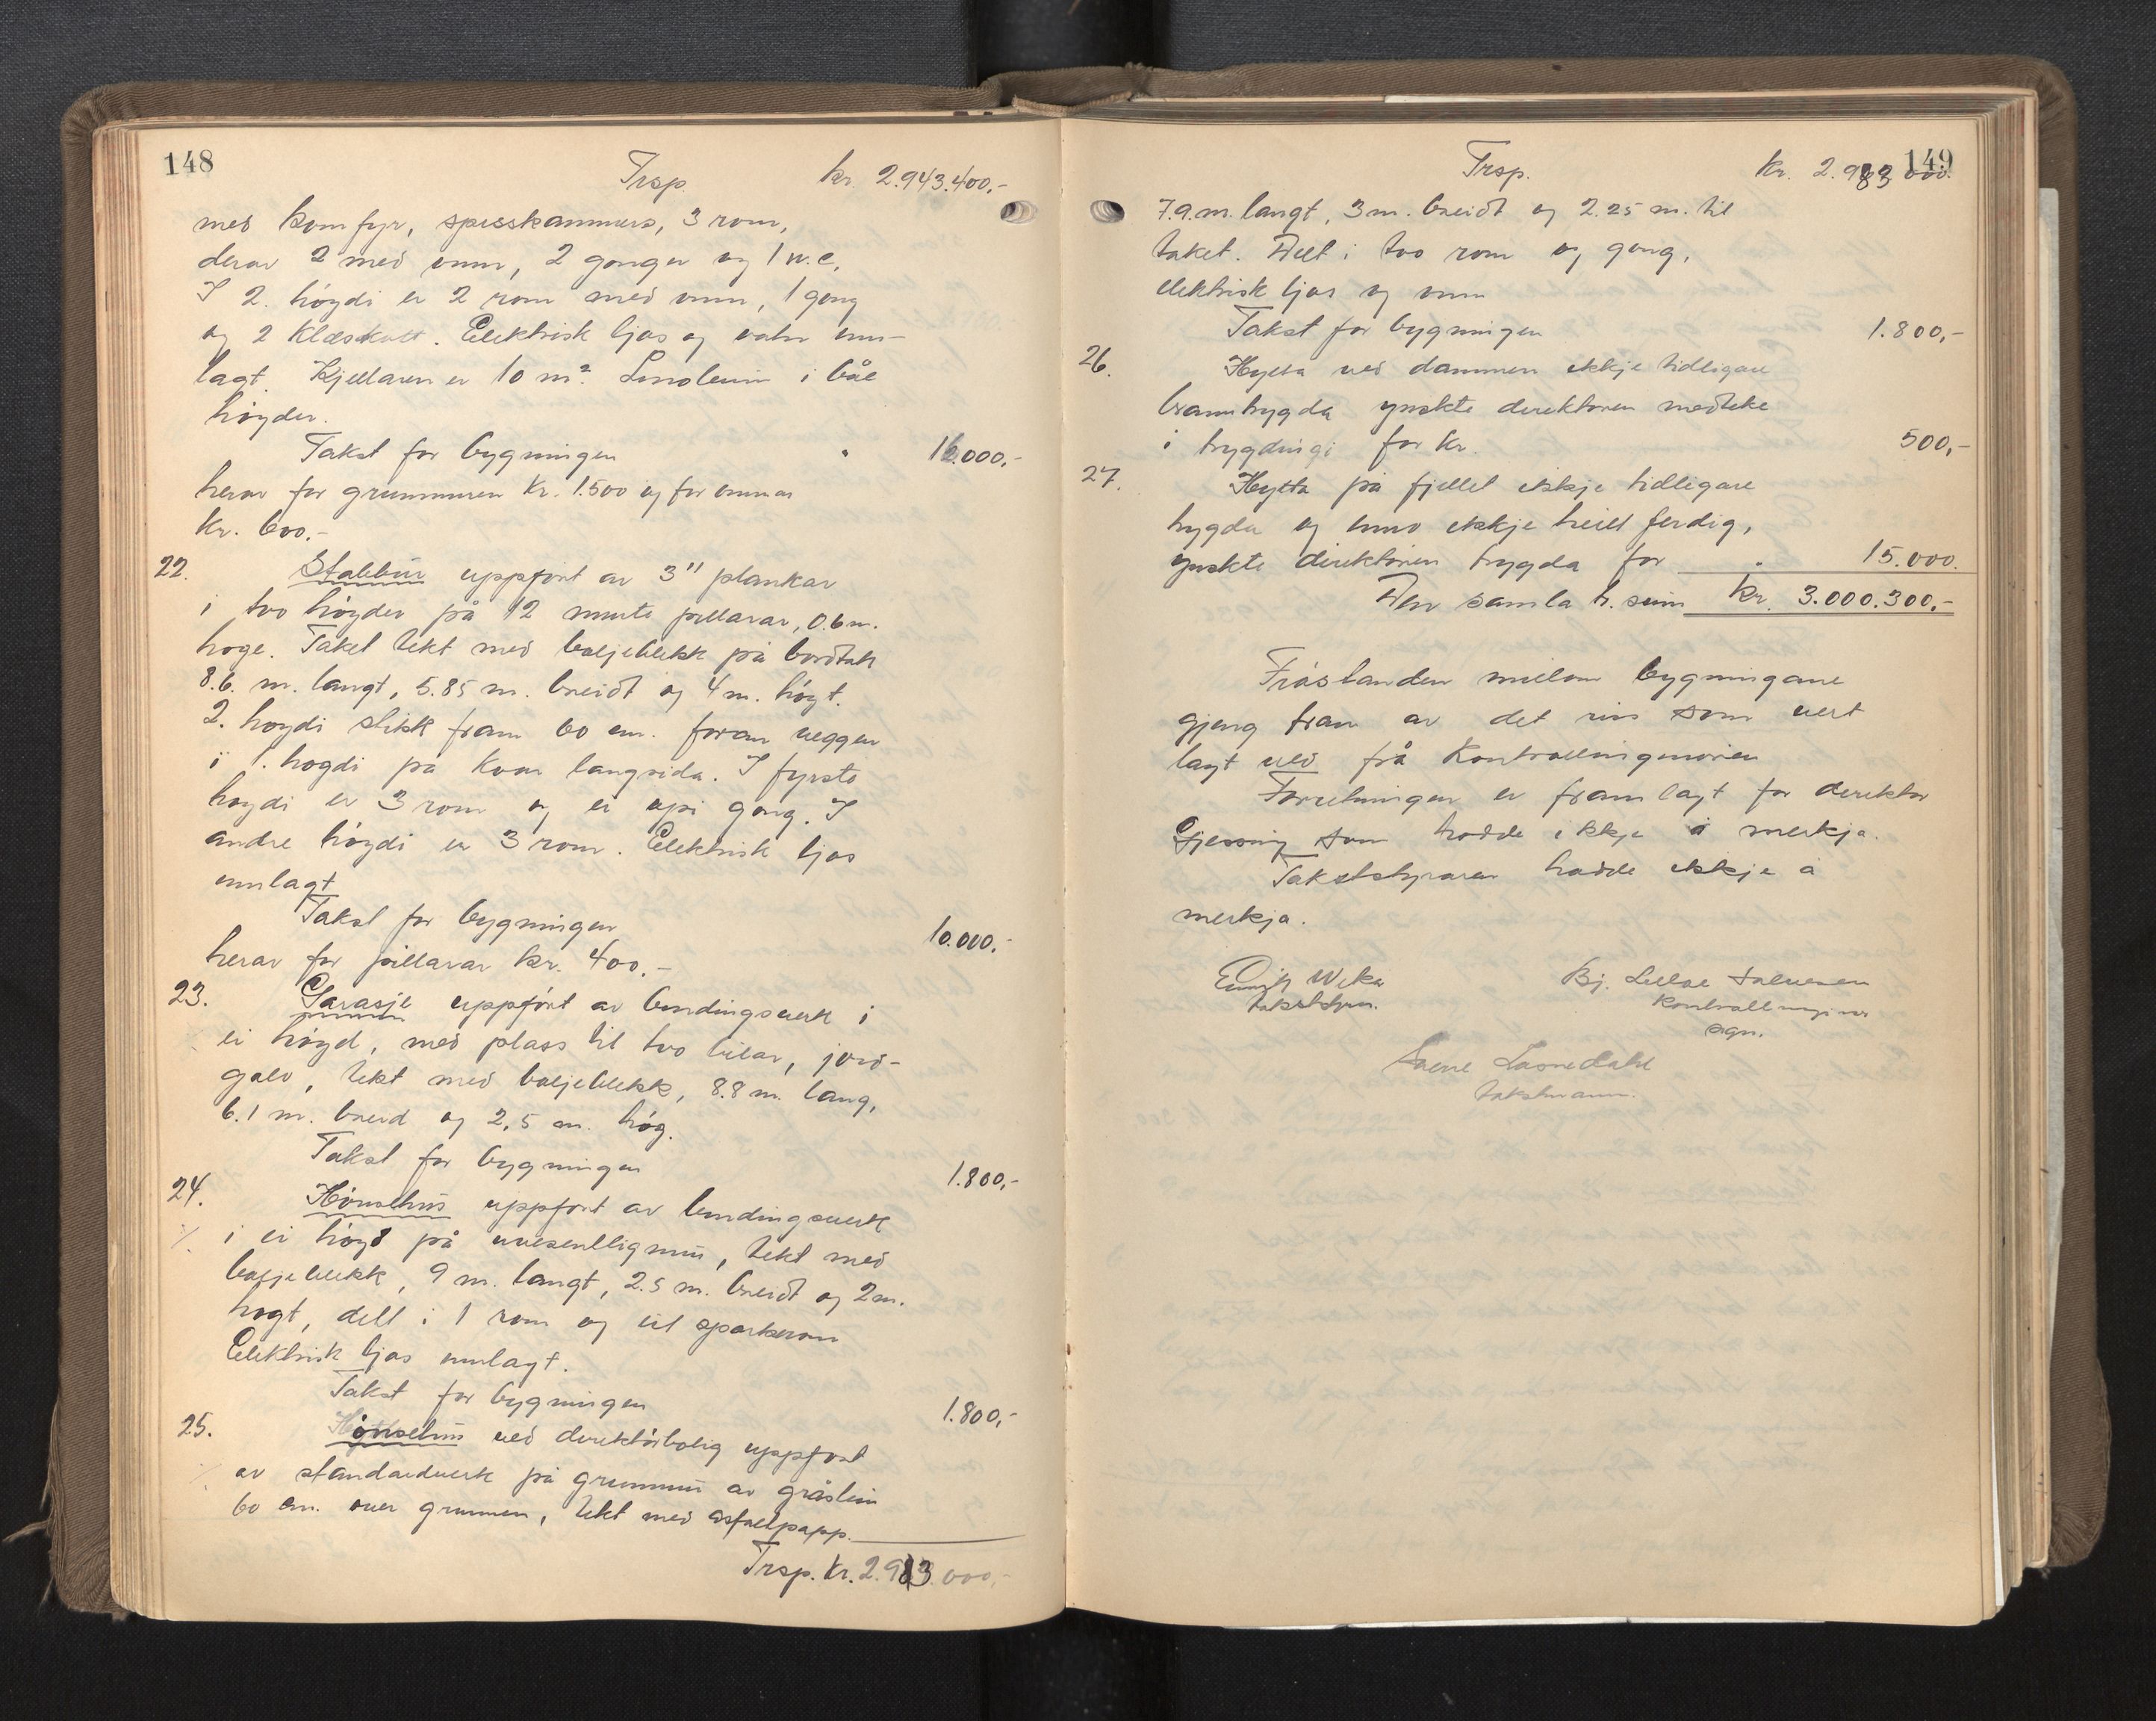 148
Trsp. kr. 2.943.400,-
med komfyr, spisskammers, 3 rom,
derav 2 med omn, 2 gonger og 1 w.c.
I 2. høgdi er 2 rom med omn, 1 gong
og 2 klæskott. Elektrisk ljos og vatn inn-
lagt. Kjellaren er 10 m². Linoleum i båe
høgder.
Takst for bygningen " 16.000,-
herav for grunnmuren kr. 1.500 og for omnar
kr. 600.-
22. Stabbur uppført av 3" plankar
i tvo høgder på 12 murte pillarar, 0.6 m.
høge. Taket tekt med bøljeblekk på bordtak
8.6. m. langt, 5.85 m. breidt og 4 m. høgt.
2. høgdi stikk fram 60 cm. foran veggen
i 1. høgdi på kvar langsida. I fyrste
høgdi er 3 rom og ei opi gong. I
andre høgdi er 3 rom. Elektrisk ljos
innlagt
Takst for bygningen 10.000,-
herav for pillarar kr. 400.-
23. Garasje uppført av bindingsverk i
ei høgd, med plass til tvo bilar, jord-
golv, tekt med bøljeblekk, 8.8 m. lang,
6.1 m. breid og 2,5 m. høg.
Takst for bygningen 1.800,-
24. Hønsehus uppført av bindingsverk
i ei høgd på uvesentlig mur, tekt med
bøljeblekk, 9 m. langt, 2.5 m. breidt og 2 m.
høgt, delt i 1 rom og eit sparkerom
Elektrisk ljos innlagt.
Takst for bygningen 1.800,-
25. Hønsehus ved direktørbolig uppført
av standardverk på grunnmur av gråstein
60 cm. over grunnen, tekt med asfaltpapp.
Trsp. kr. 2.983.000,-
149
Trsp. kr. 2.983.000.
7.9. m. langt, 3 m. breidt og 2.25 m. til
taket. Delt i tvo rom og gong,
elektrisk ljos og omn
Takst for bygningen 1.800,-
26. Hytta ved dammen ikkje tidligare
branntrygda ynskte direktøren medteke
i trygdingi for kr. 500,-
27. Hytta på fjellet ikkje tidligare
trygda og enno ikkje heilt ferdig,
ynskte direktøren trygda for " 15.000.
Den samla tr. sum kr. 3.000.300,-
Fråstanden millom bygningane
gjeng fram av det riss som vert
lagt ved frå Kontrollingeniøren
Forretningen er framlagt for direktør
Gjessing som hadde ikkje å merkja.
Takststyraren hadde ikkje å
merkja.
takststyrar.
Bj. Lelloe Salvesen
Kontrollingeniør
sign.
takstmann.